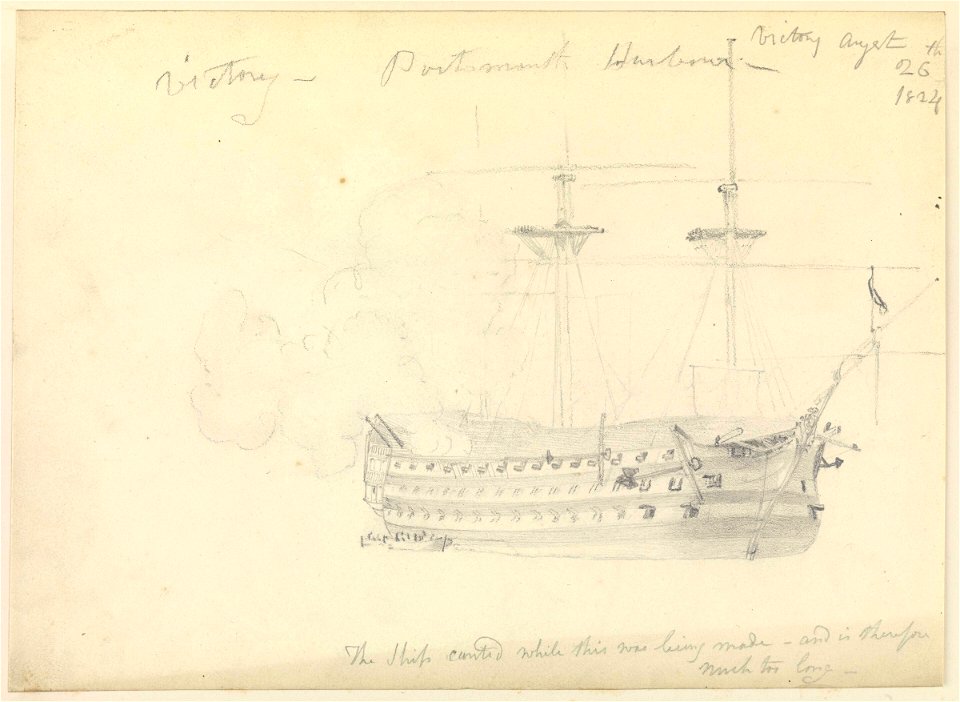 Victory – Portsmouth Harbour –
Victory August 26th
1824
The Ship canted while this was being made – and is therefore
much too long –